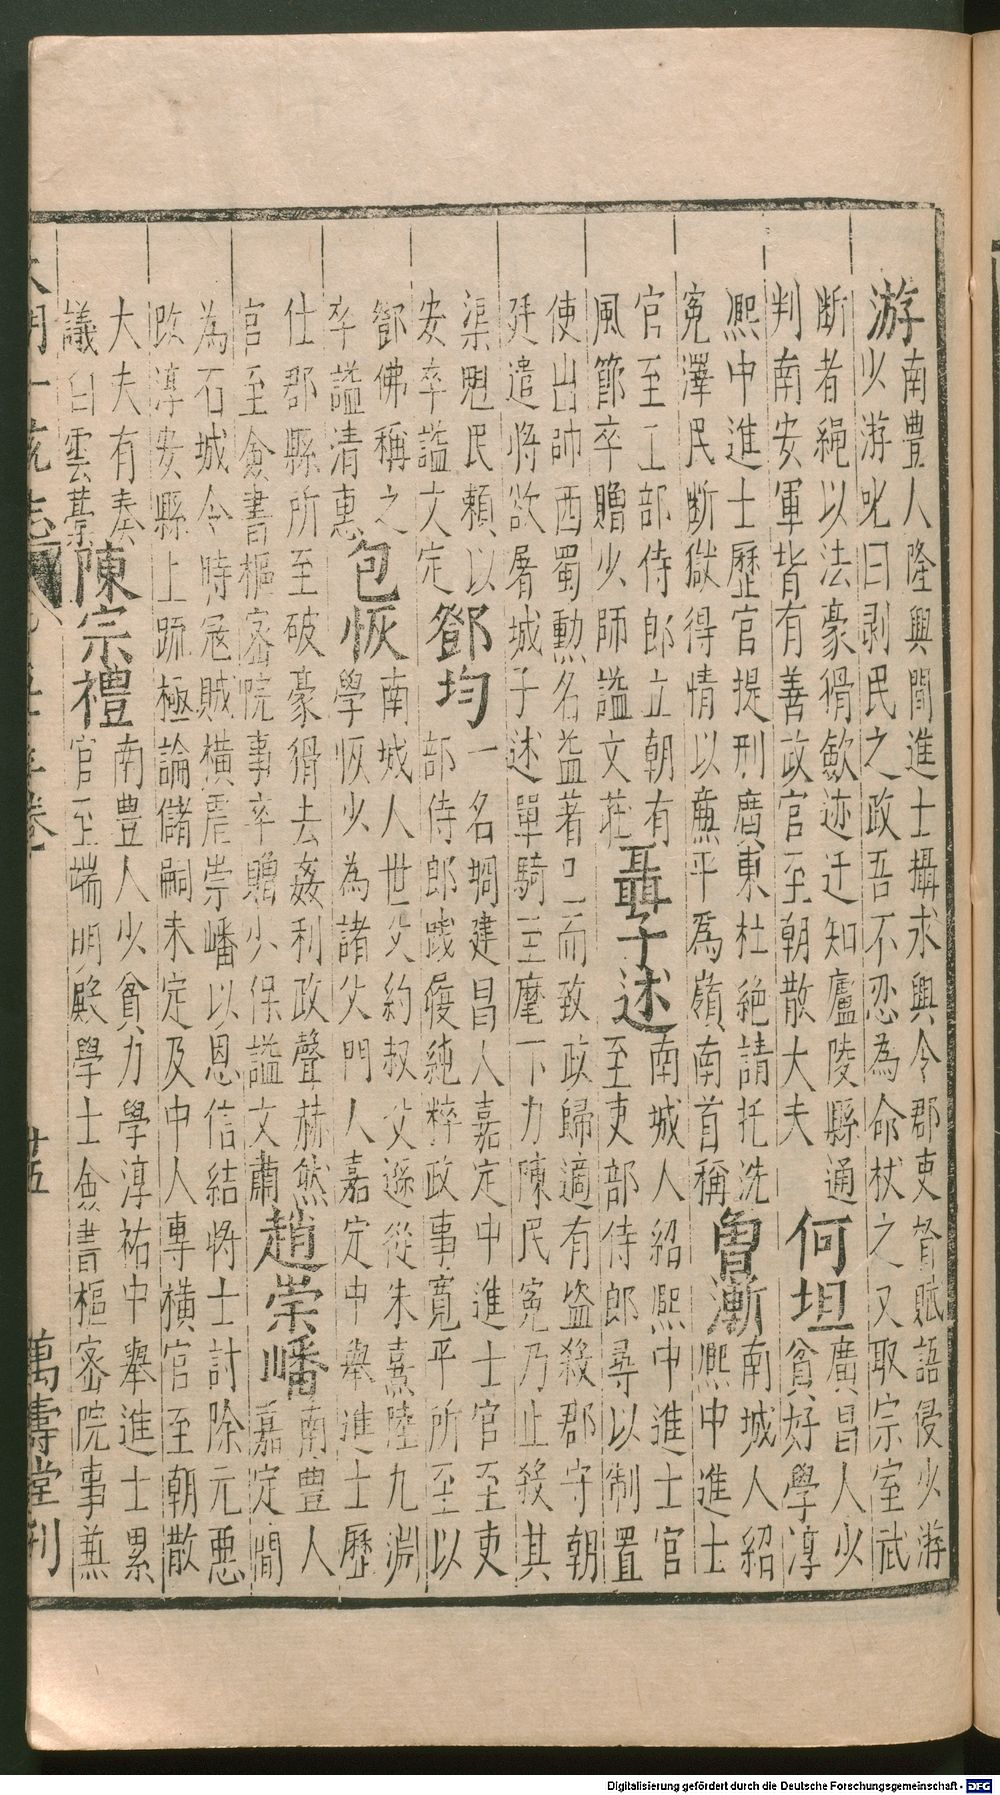 游南豊人隆興間進士攝永興令郡吏督賦語侵少游
以游叱曰剥民之政吾不忍為命杖之又取宗室武
断者繩以法豪猾歛迹迁知廬陵縣通
判南安軍皆有善政官至朝散大夫
何坦廣昌人少
貧好學淳
熈中進士歷官提刑廣東杜絶請托洗
寃澤民断獄得情以亷平為嶺南首稱
曾漸南城人紹
熈中進士
官至工部侍郎立朝有
風節卒贈少師謚文莊
聶子述南城人紹熈中進士官
至吏部侍郎尋以制置
使出帥西蜀勲名益著而致政歸適有盗殺郡守朝
廷遣将欲屠城子述單騎至麾下力陳民寃乃止殺其
渠魁民頼以
安卒謚文定
鄧均一名㭎建昌人嘉定中進士官至吏
部侍郎践履純粹政事寛平所至以
鄧佛稱之
卒謚清惠
包恢南城人世父約叔父遜從朱熹陸九淵
學恢少為諸父門人嘉定中舉進士歷
仕郡縣所至破豪猾去姦利政聲赫然
官至僉書樞宻院事卒贈少保謚文肅
趙崇皤南豊人
嘉定間
為石城令時冦賊横虐崇皤以恩信結将士討除元惡
改淳安縣上䟽極論儲嗣未定及中人專横官至朝散
大夫有奏
議白雲藁
陳宗禮南豊人少貧力學淳祐中舉進士累
官至端明殿學士僉書樞宻院事兼
大明一統志
卷
廿五
萬壽堂刋
Digitalisierung gefördert durch die Deutsche Forschungsgemeinschaft - DFG